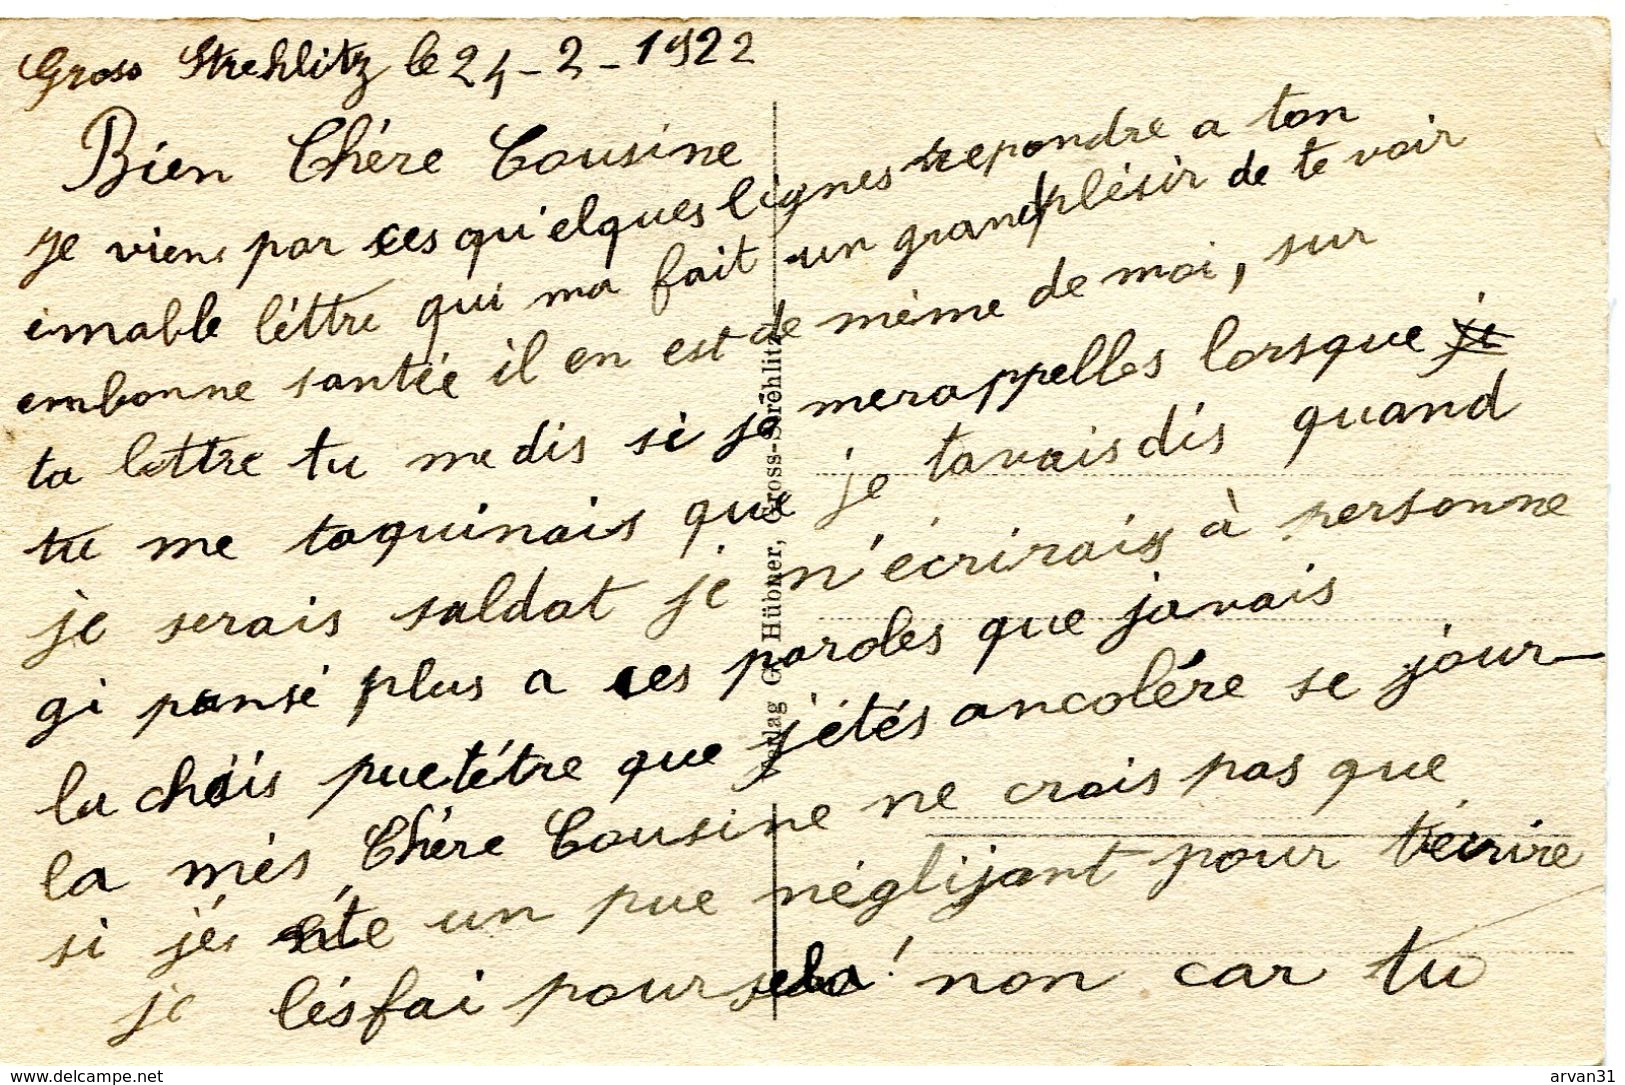 Gross Strehlitz le 24-2-1922
Bien Chère Cousine
Je viens par ces qu'elques lignes repondre a ton
émable léttre qui ma fait un grand plésir de te voir
embonne santée il en est de même de moi, sur
ta lettre tu me dis si je merappelles lorsque je
tu me taquinais que je tavais dis quand
je serais soldat je n'écrirais à personne
gi pansé plus a ces paroles que javais
la chois puetétre que jétés ancolére se jour-
la més Chére Cousine ne crois pas que
si jés été un pue néglijant pour técrire
je lésfai pour sela! non car tu
Verlag G. Hübner, Gross-Strehlitz
www.delcampe.net
arvan31